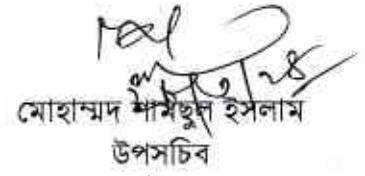 মোহাম্মদ শামছুল ইসলাম
উপসচিব